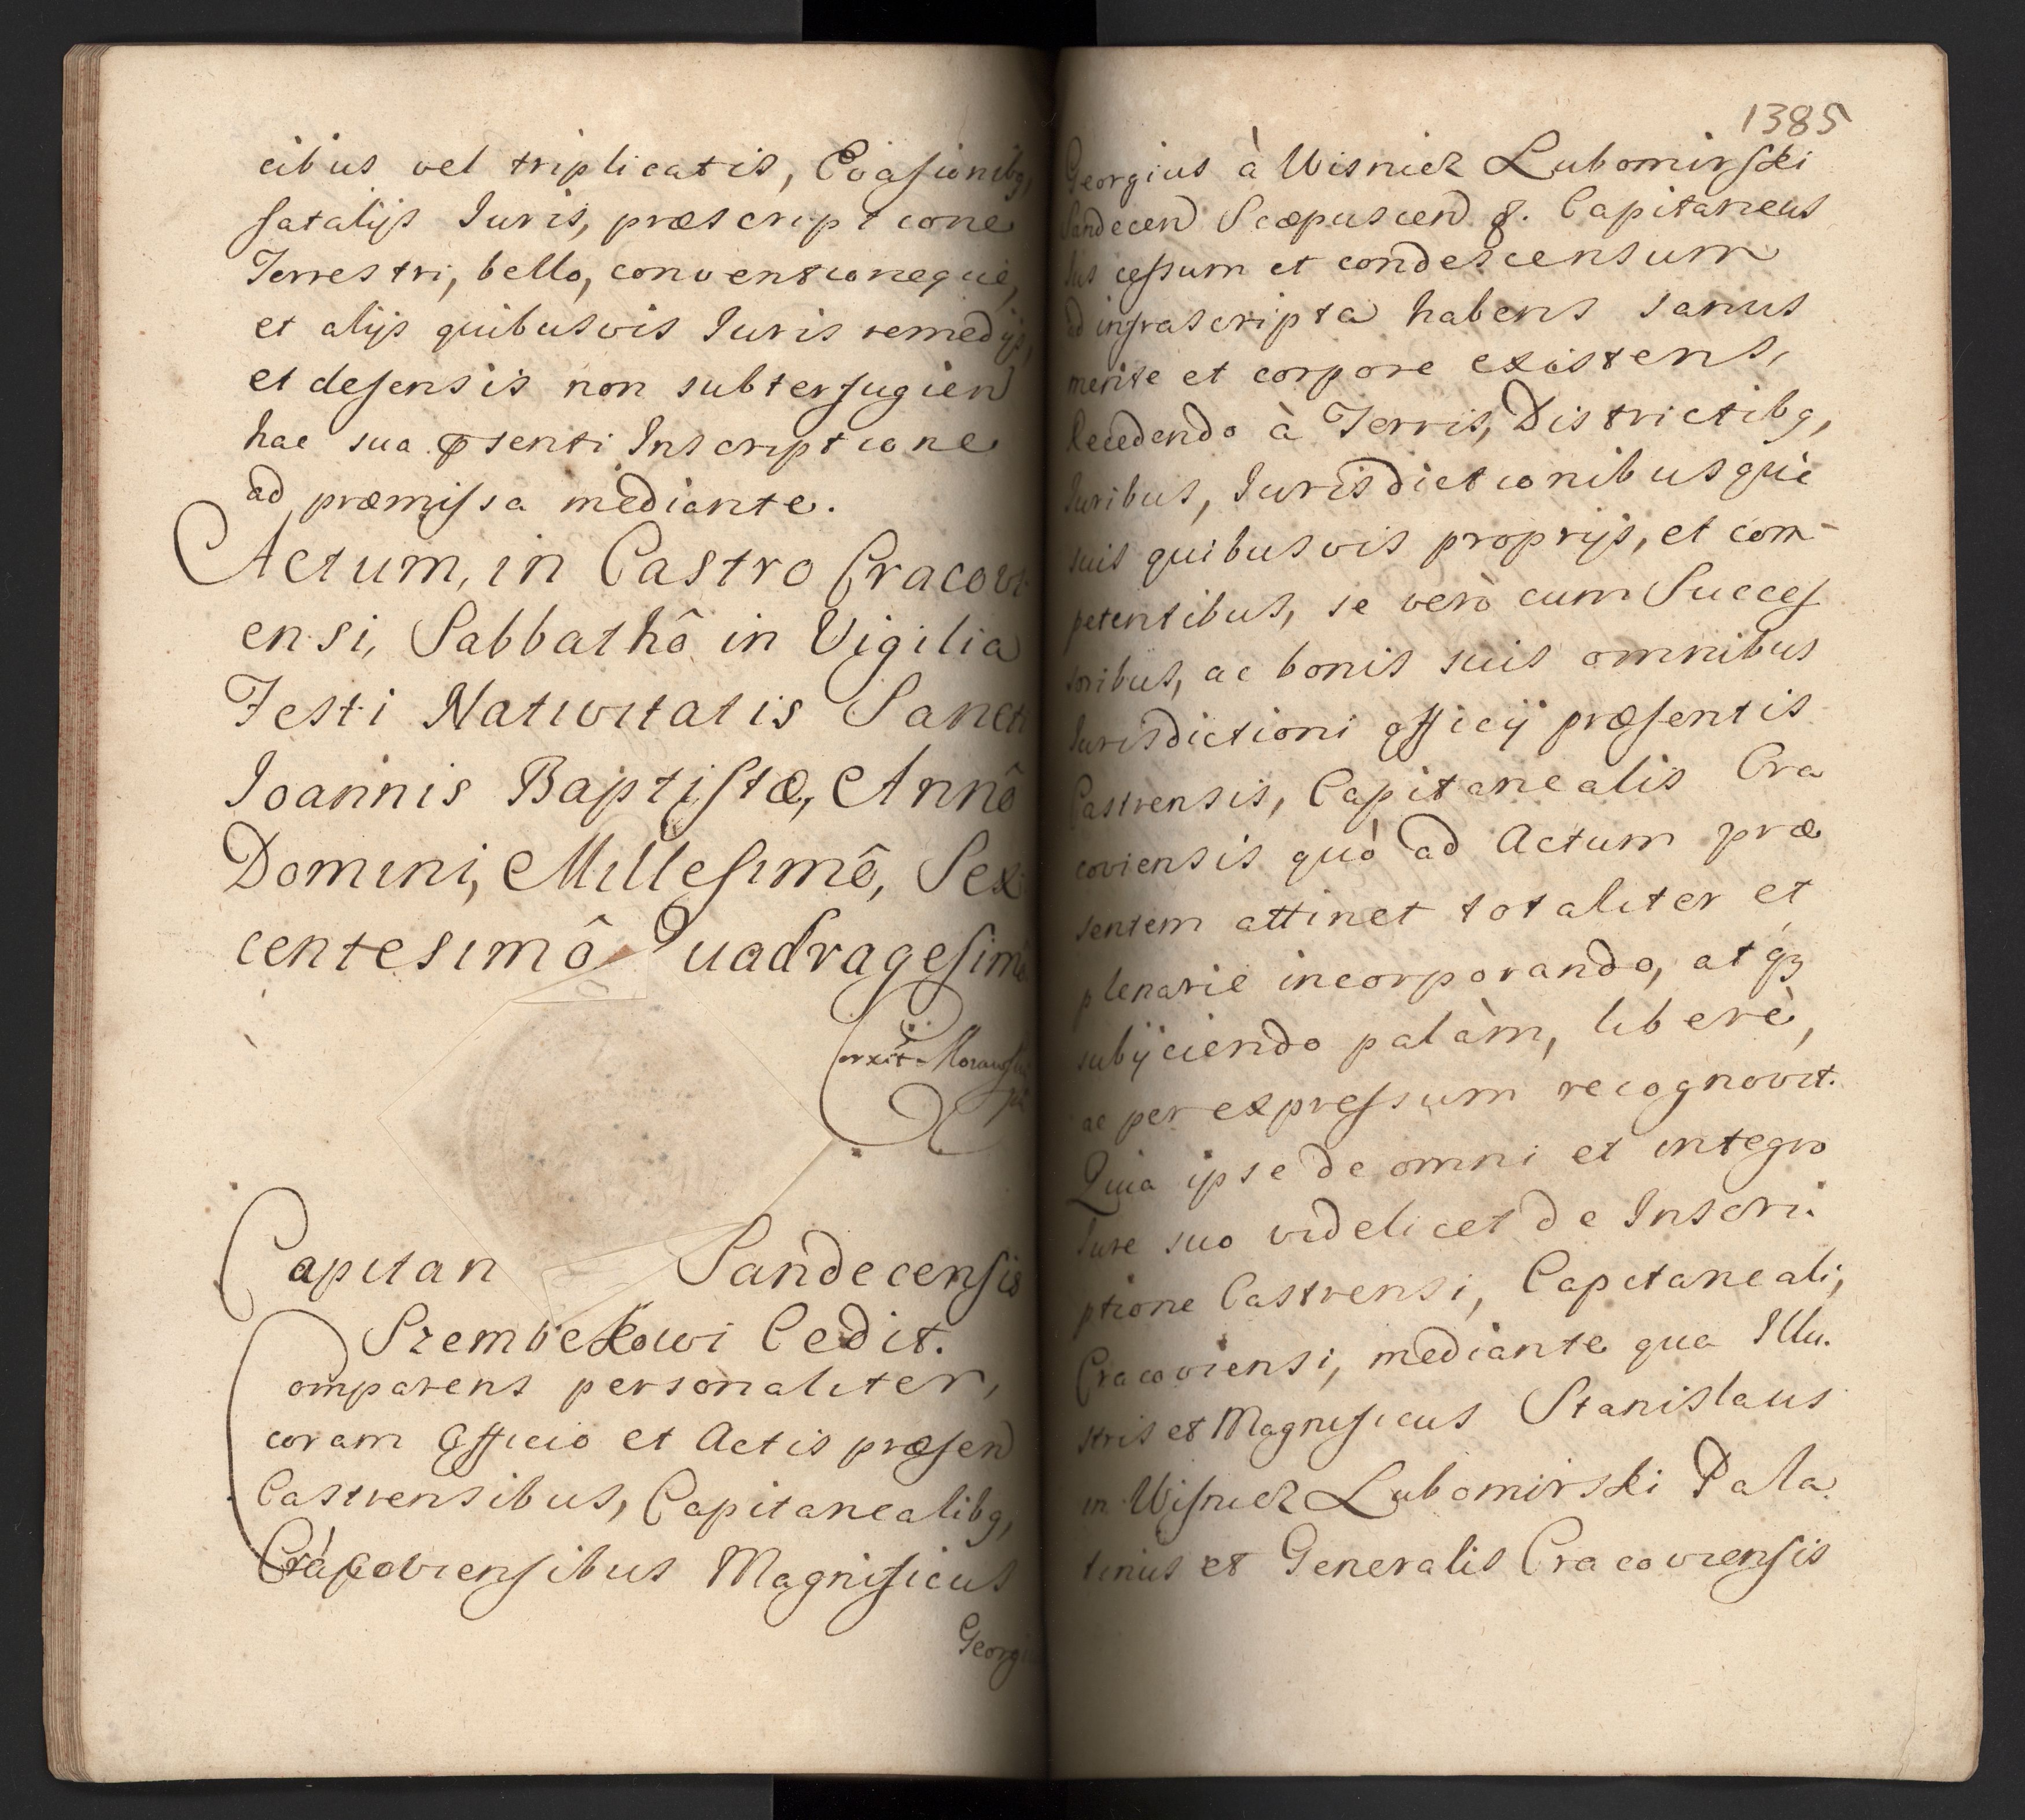 cibus vel triplicatis, Evasionibq,
fatalijs Iuris, præscriptione
Terrestri, bello, conventioneque,
et alijs quibusvis Iuris remedijs,
et defensis non subterfugien
hac sua p̄senti Inscriptione
ad præmissa mediante.
Actum, in Castro Cracovi
ensi, Sabbathô in Vigilia
Festi Nativitatis Sancti
Ioannis Baptistæ, Annô
Domini, Millesimô, Sex
centesimô Quadragesimô
Capitan Sandecensis
Szembekowi Cedit.
Comparens personaliter,
coram Officio et Actis præsen
Castrensibus, Capitanealibq,
Cracoviensibus Magnificus
Georgi
1385
Georgius à Wisnicz Lubomirski
Sandecen Scæpuscen &. Capitaneus
Ius cessum et condescensum
ad infrascripta habens sanus
mente et corpore existens,
Recedendo à Terris, Districtibq,
Iuribus, Iurisdictionibusque
suis quibusvis proprijs, et com-
petentibus, se verò cum Succes
soribus, ac bonis suis omnibus
Iurisdictioni officij præsentis
Castrensis, Capitanealis Cra
coviensis quò ad Actum præ
sentem attinet totaliter et
plenarie incorporando, atqꝫ
subijciendo palàm, liberè,
ac per expressum recognovit.
Quia ipse de omni et integro
Iure suo videlicet de Inscri
ptione Castrensi, Capitaneali,
Cracoviensi, mediante qua Illu.
stris et Magnificus Stanislaus
in Wisnicz Lubomirski Pala
tinus et Generalis Cracoviensis